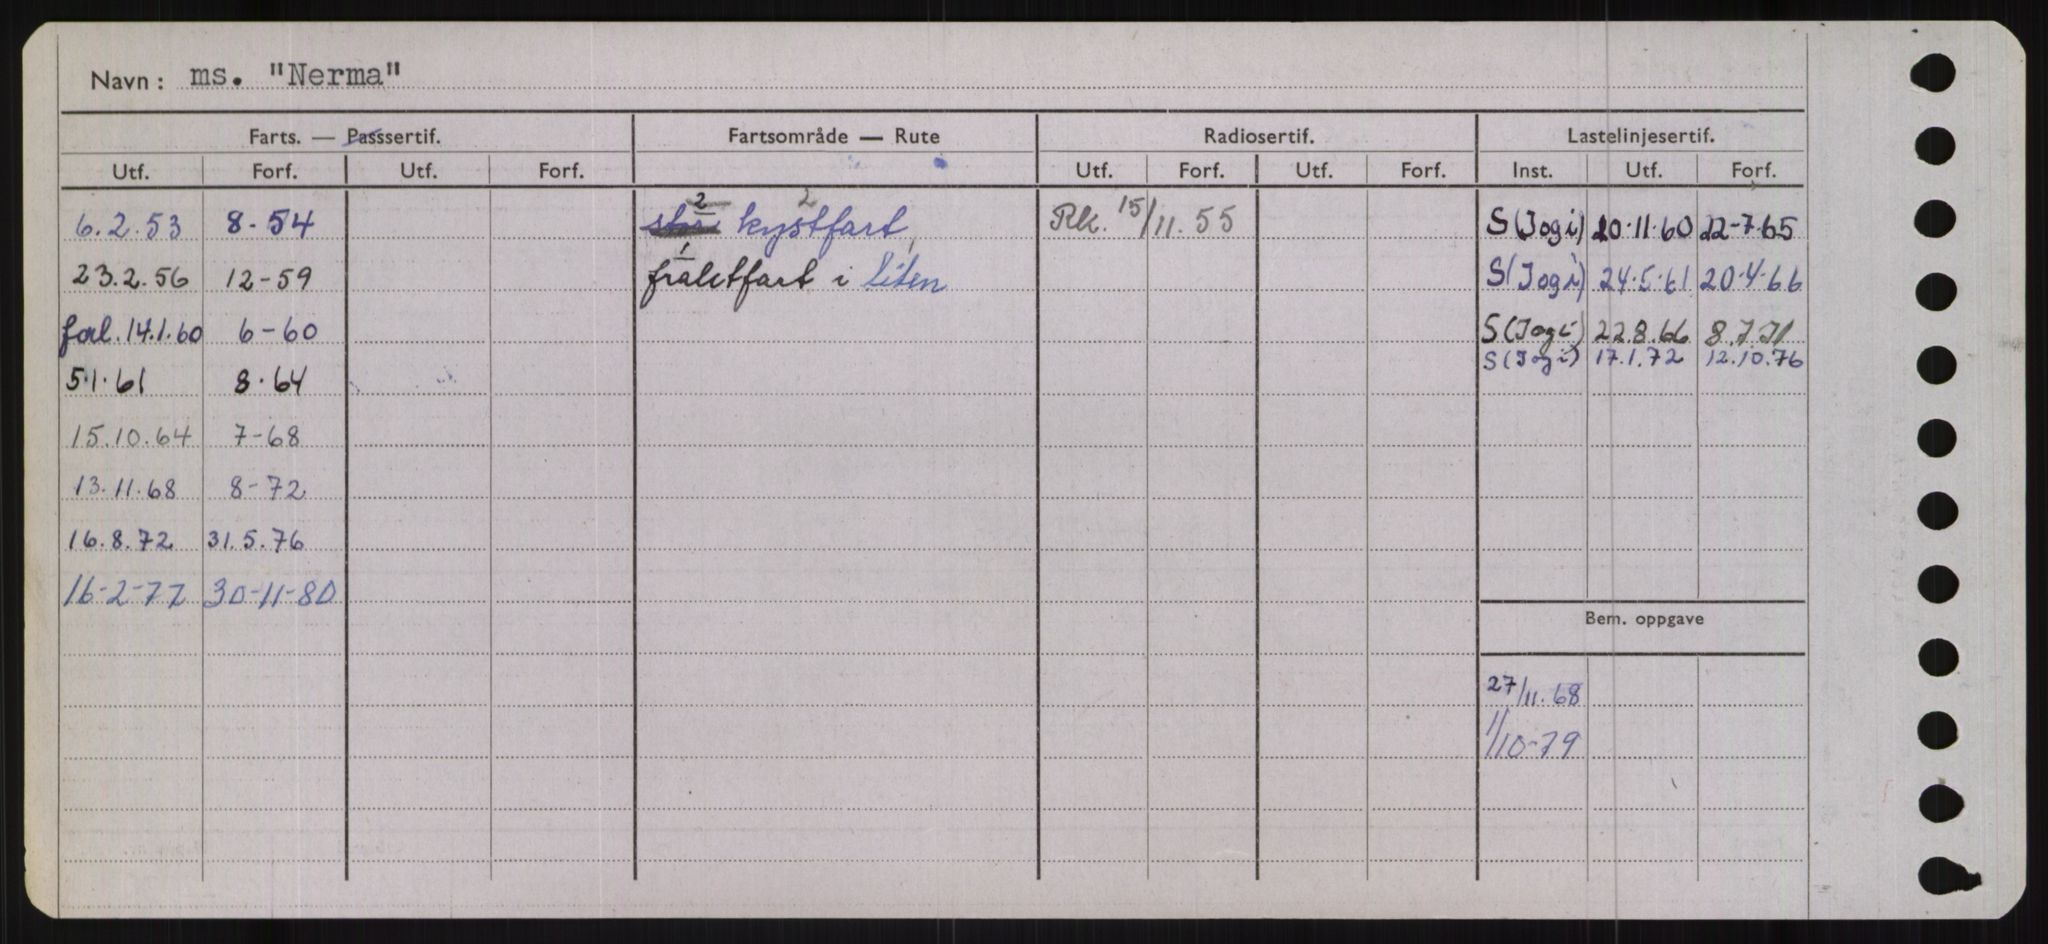 Navn: ms. "Nerma"
Farts. — Passsertif. Fartsområde — Rute Radiosertif. Lastelinjesertif.
Utf. Forf. Utf. Forf. Utf. Forf. Utf. Forf. Inst. Utf. Forf.
2 2
6.2.53 8-54 kystfart, Rk. 15/11.55 S (Jogi) 20.11.60 22-7.65
1
23.2.56 12-59 fraktfart i liten S (Jogi) 24.5.61 20.4.66
forl. 14.1.60 6-60 S (Jogi) 22.8.66 8.7.71
S (Jogi) 17.1.72 12.10.76
5.1.61 8.64
15.10.64 7-68
13.11.68 8-72
16.8.72 31.5.76
16-2-77 30-11-80
Bem. oppgave
27/11.68
1/10-79